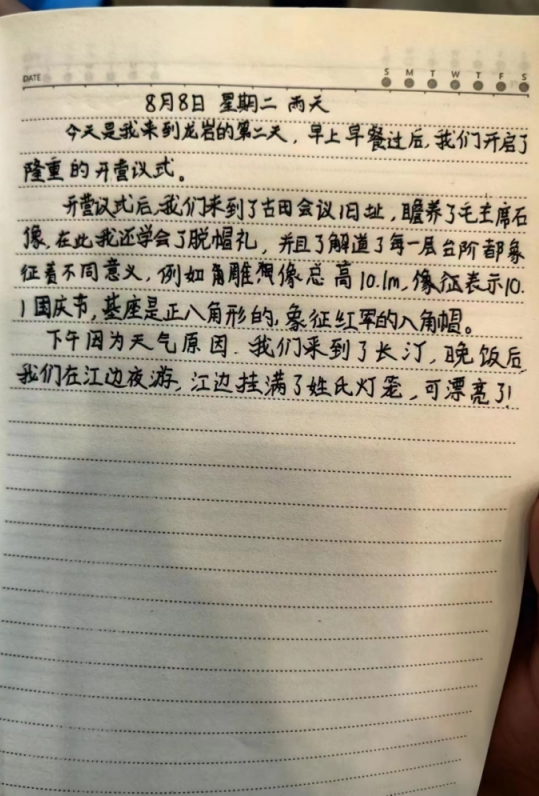 DATE
S M T W T F S
8月8日 星期二 雨天
今天是我来到龙岩的第二天，早上早餐过后，我们开启了
隆重的开营议式。
开营议式后，我们来到了古田会议旧址，瞻养了毛主席石
像，在此我还学会了脱帽礼，并且了解道了每一层台阶都象
征着不同意义，例如角雕像总高10.1m，像征表示10.
1国庆节，基座是正八角形的，象征红军的八角帽。
下午因为天气原因，我们来到了长汀，晚饭后
我们在江边夜游，江边挂满了姓氏灯笼，可漂亮了！